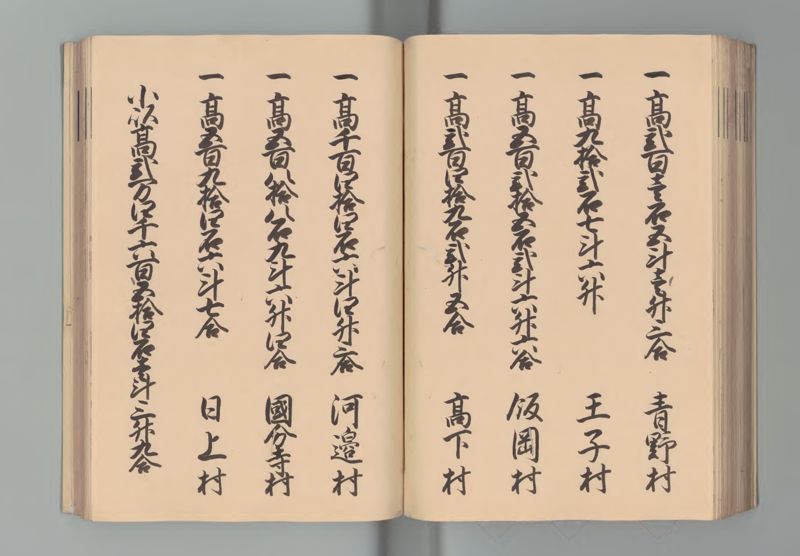 一 高弐百壱石五斗壱升二合 青野村
一 高九拾弐石七斗六升 王子村
一 高五百弐拾五石弐斗六升六合 飯岡村
一 高弐百四拾九石弐升五合 高下村
一 高千百四拾四石六斗四升二合 河邉村
一 高五百八拾八石九斗六升四合 國分寺村
一 高五百九拾四石六斗七合 日上村
小以高弐万四千六百五拾四石壱斗二升九合